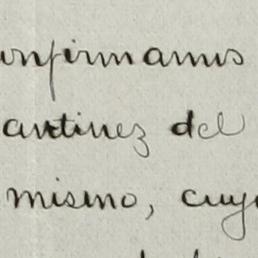 onfirmamos
artinez del
mismo, cuyo